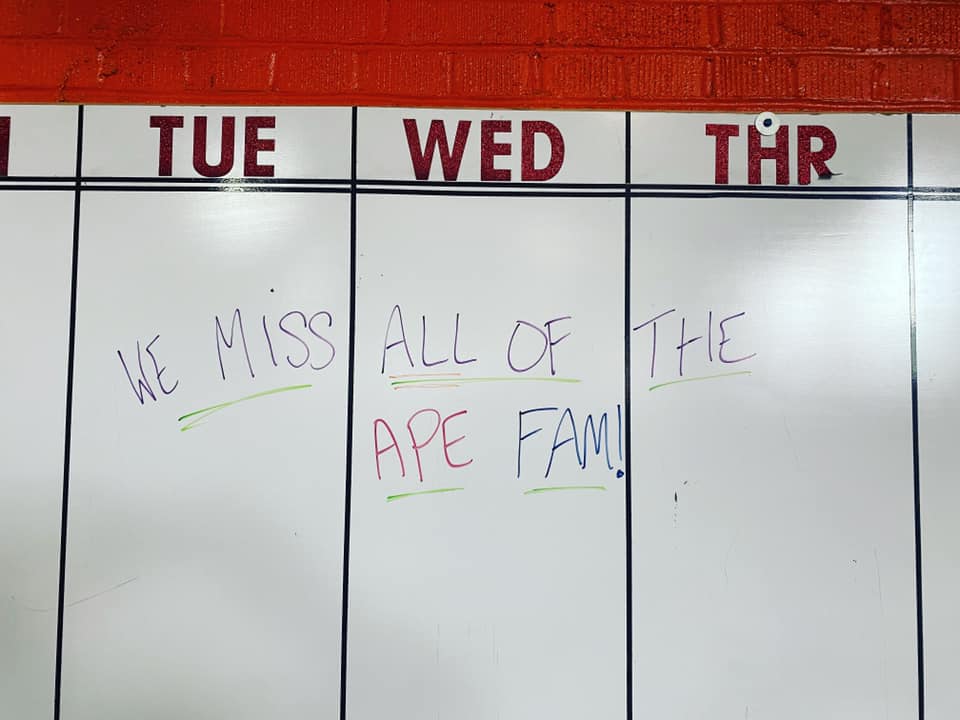 TUE WED THR
WE MISS ALL OF THE
APE FAM!